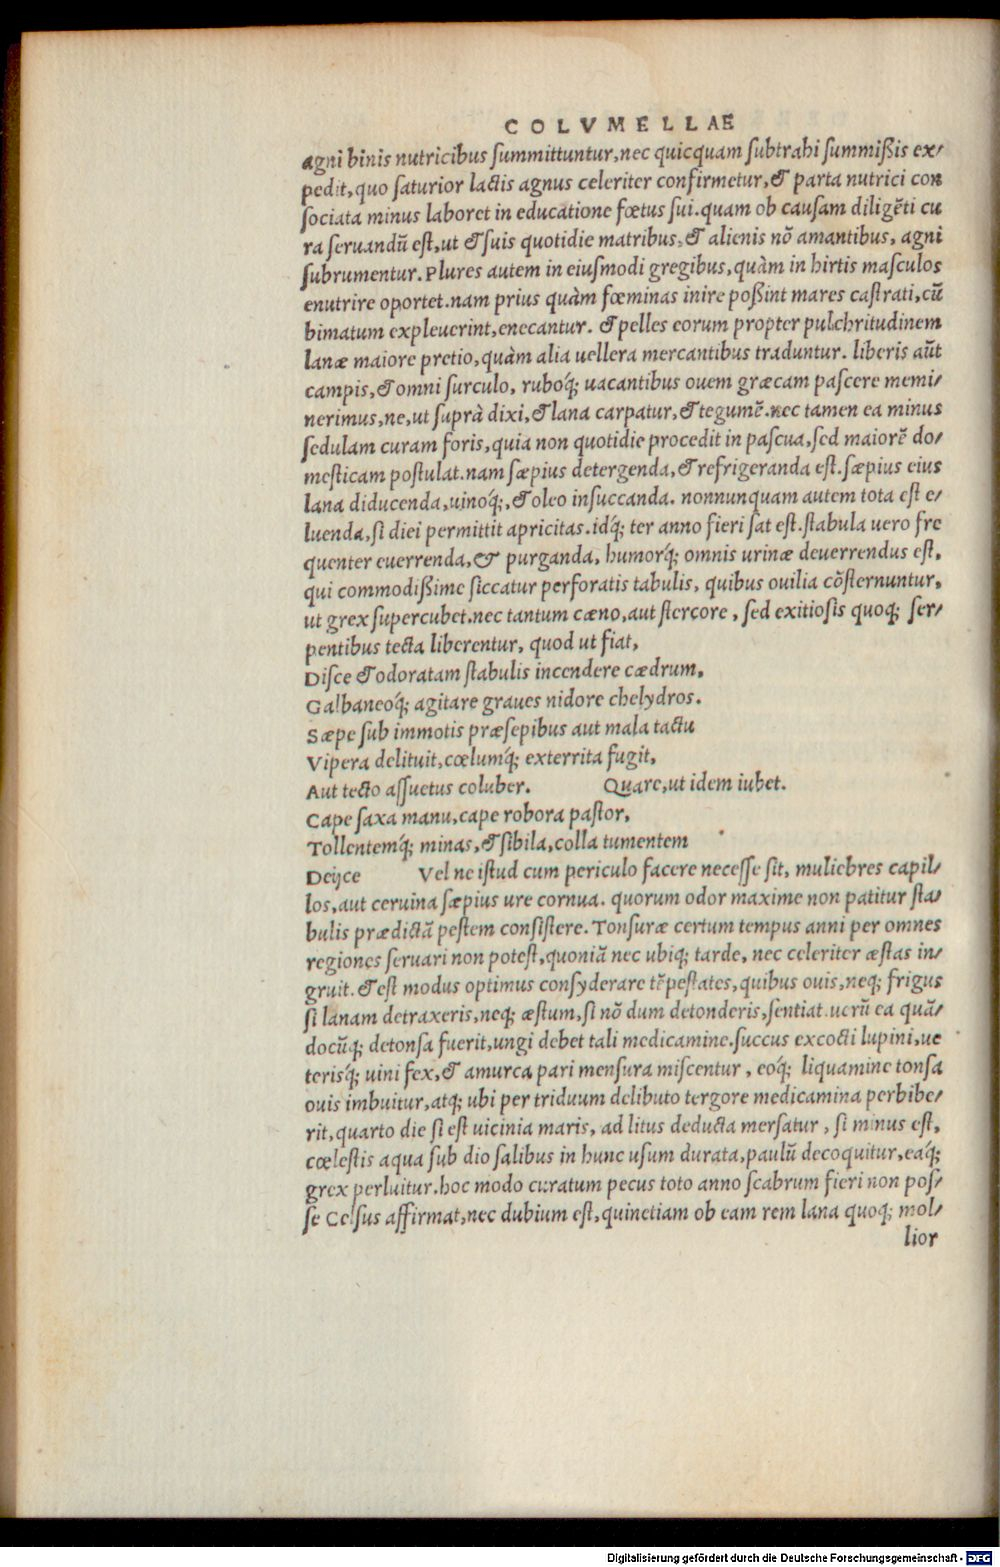 COLVMELLAE
agni binis nutricibus summittuntur, nec quicquam subtrahi summißis ex/
pedit, quo saturior lactis agnus celeriter confirmetur, & parta nutrici con
sociata minus laboret in educatione fœtus sui. quam ob causam diligẽti cu
ra seruandũ est, ut & suis quotidie matribus, & alienis nõ amantibus, agni
subrumentur. Plures autem in eiusmodi gregibus, quàm in hirtis masculos
enutrire oportet. nam prius quàm fœminas inire poßint mares castrati, cũ
bimatum expleuerint, enecantur. & pelles eorum propter pulchritudinem
lanæ maiore pretio, quàm alia uellera mercantibus traduntur. liberis aũt
campis, & omni surculo, ruboq́; uacantibus ouem græcam pascere memi/
nerimus, ne, ut suprà dixi, & lana carpatur, & tegumẽ. nec tamen ea minus
sedulam curam foris, quia non quotidie procedit in pascua, sed maiorẽ do/
mesticam postulat. nam sæpius detergenda, & refrigeranda est. sæpius eius
lana diducenda, uinoq́;, & oleo insuccanda. nonnunquam autem tota est e/
luenda, si diei permittit apricitas. idq́; ter anno fieri sat est. stabula uero fre
quenter euerrenda, & purganda, humorq́; omnis urinæ deuerrendus est,
qui commodißime siccatur perforatis tabulis, quibus ouilia cõsternuntur,
ut grex supercubet. nec tantum cæno, aut stercore, sed exitiosis quoq; ser/
pentibus tecta liberentur, quod ut fiat,
Disce & odoratam stabulis incendere cædrum,
Galbaneoq́; agitare graues nidore chelydros.
Sæpe sub immotis præsepibus aut mala tactu
Vipera delituit, cœlumq́; exterrita fugit,
Aut tecto assuetus coluber. Quare, ut idem iubet.
Cape saxa manu, cape robora pastor,
Tollentemq́; minas, & sibila, colla tumentem
Deijce Vel ne istud cum periculo facere necesse sit, muliebres capil/
los, aut ceruina sæpius ure cornua. quorum odor maxime non patitur sta/
bulis prædictã pestem consistere. Tonsuræ certum tempus anni per omnes
regiones seruari non potest, quoniã nec ubiq; tarde, nec celeriter æstas in/
gruit. & est modus optimus consyderare tẽpestates, quibus ouis, neq; frigus
si lanam detraxeris, neq; æstum, si nõ dum detonderis, sentiat. uerũ ea quã/
docũq; detonsa fuerit, ungi debet tali medicamine. succus excocti lupini, ue
terisq́; uini fex, & amurca pari mensura miscentur, eoq́; liquamine tonsa
ouis imbuitur, atq; ubi per triduum delibuto tergore medicamina perbibe/
rit, quarto die si est uicinia maris, ad litus deducta mersatur, si minus est,
cœlestis aqua sub dio salibus in hunc usum durata, paulũ decoquitur, eaq́;
grex perluitur. hoc modo curatum pecus toto anno scabrum fieri non pos/
se Celsus affirmat, nec dubium est, quinetiam ob eam rem lana quoq; mol/
lior
Digitalisierung gefördert durch die Deutsche Forschungsgemeinschaft - DFG